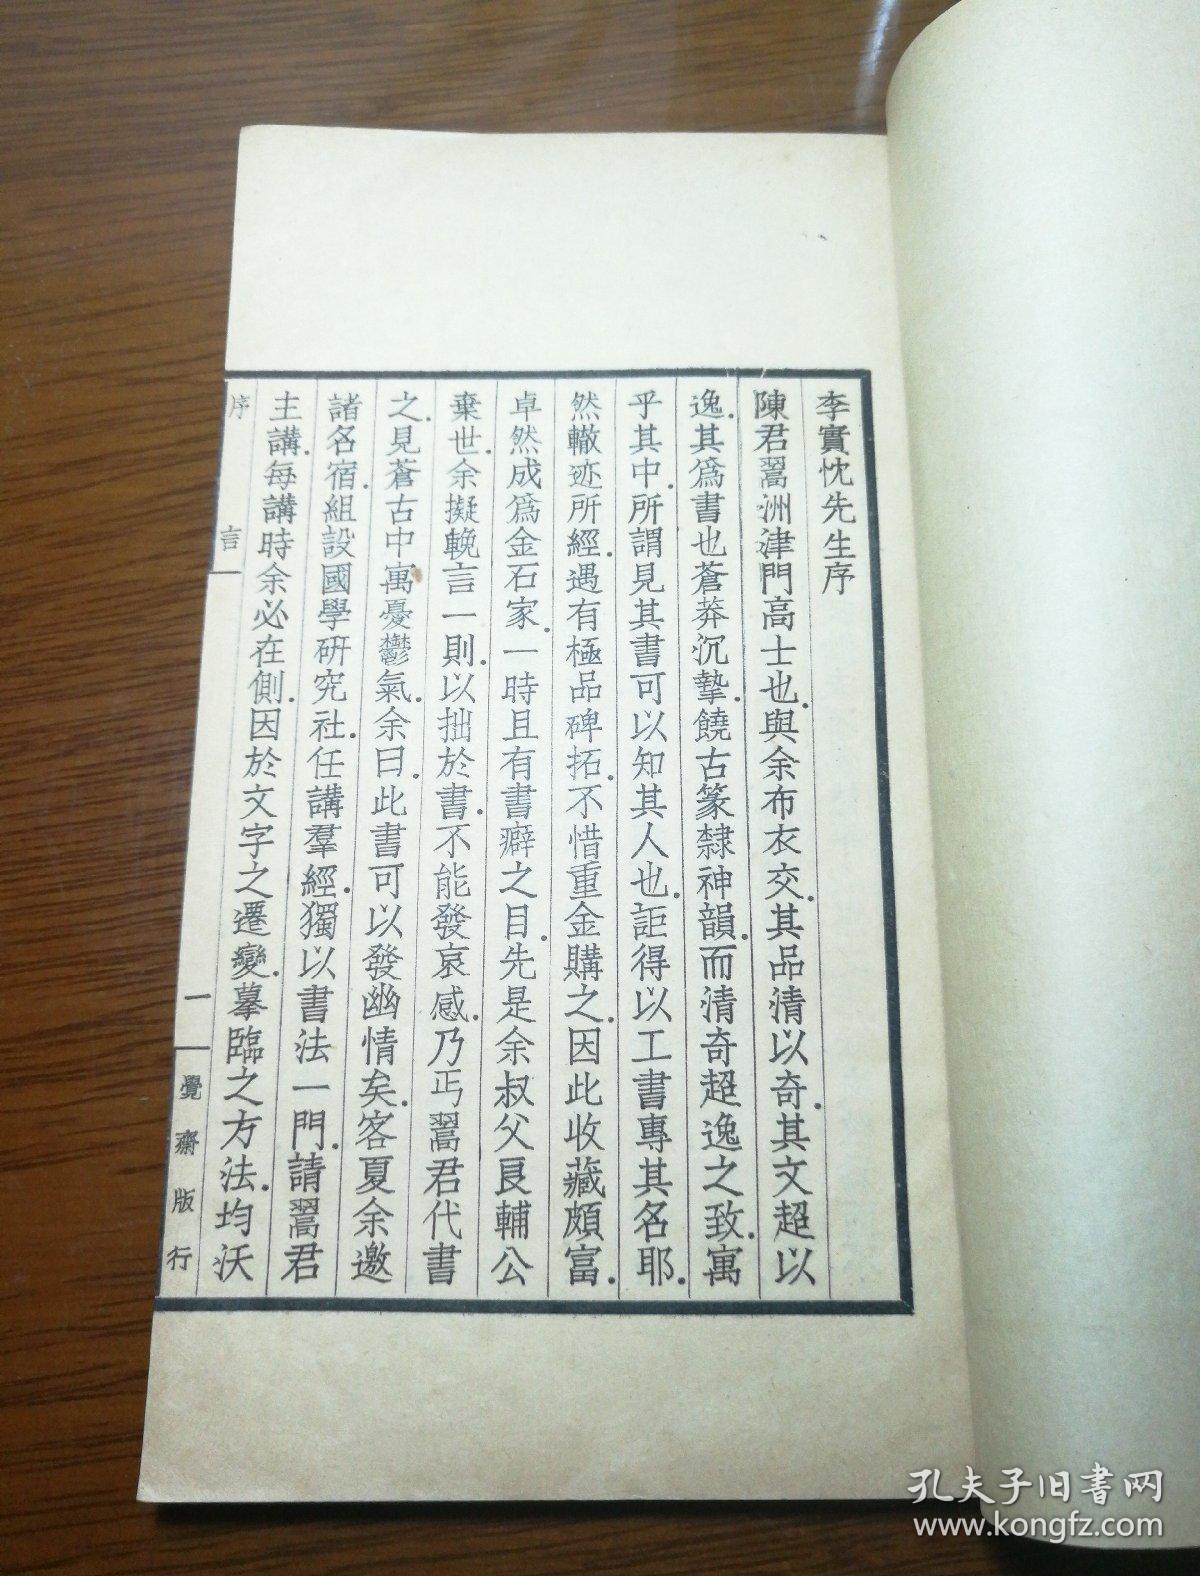 李實忱先生序
陳君翯洲津門高士也.與余布衣交.其品清以奇.其文超以
逸.其爲書也蒼莽沉摯.饒古篆隸神韻.而清奇超逸之致.寓
乎其中.所謂見其書可以知其人也.詎得以工書專其名耶.
然轍迹所經.遇有極品碑拓.不惜重金購之.因此收藏頗富.
卓然成爲金石家.一時且有書癖之目.先是余叔父艮輔公
棄世.余擬輓言一則.以拙於書.不能發哀感.乃丐翯君代書
之.見蒼古中寓憂鬱氣.余曰.此書可以發幽情矣.客夏余邀
諸名宿.組設國學研究社.任講羣經.獨以書法一門.請翯君
主講.每講時余必在側.因於文字之遷變.摹臨之方法.均沃
序言
一
覺齋版行
孔夫子旧书网
www.kongfz.com